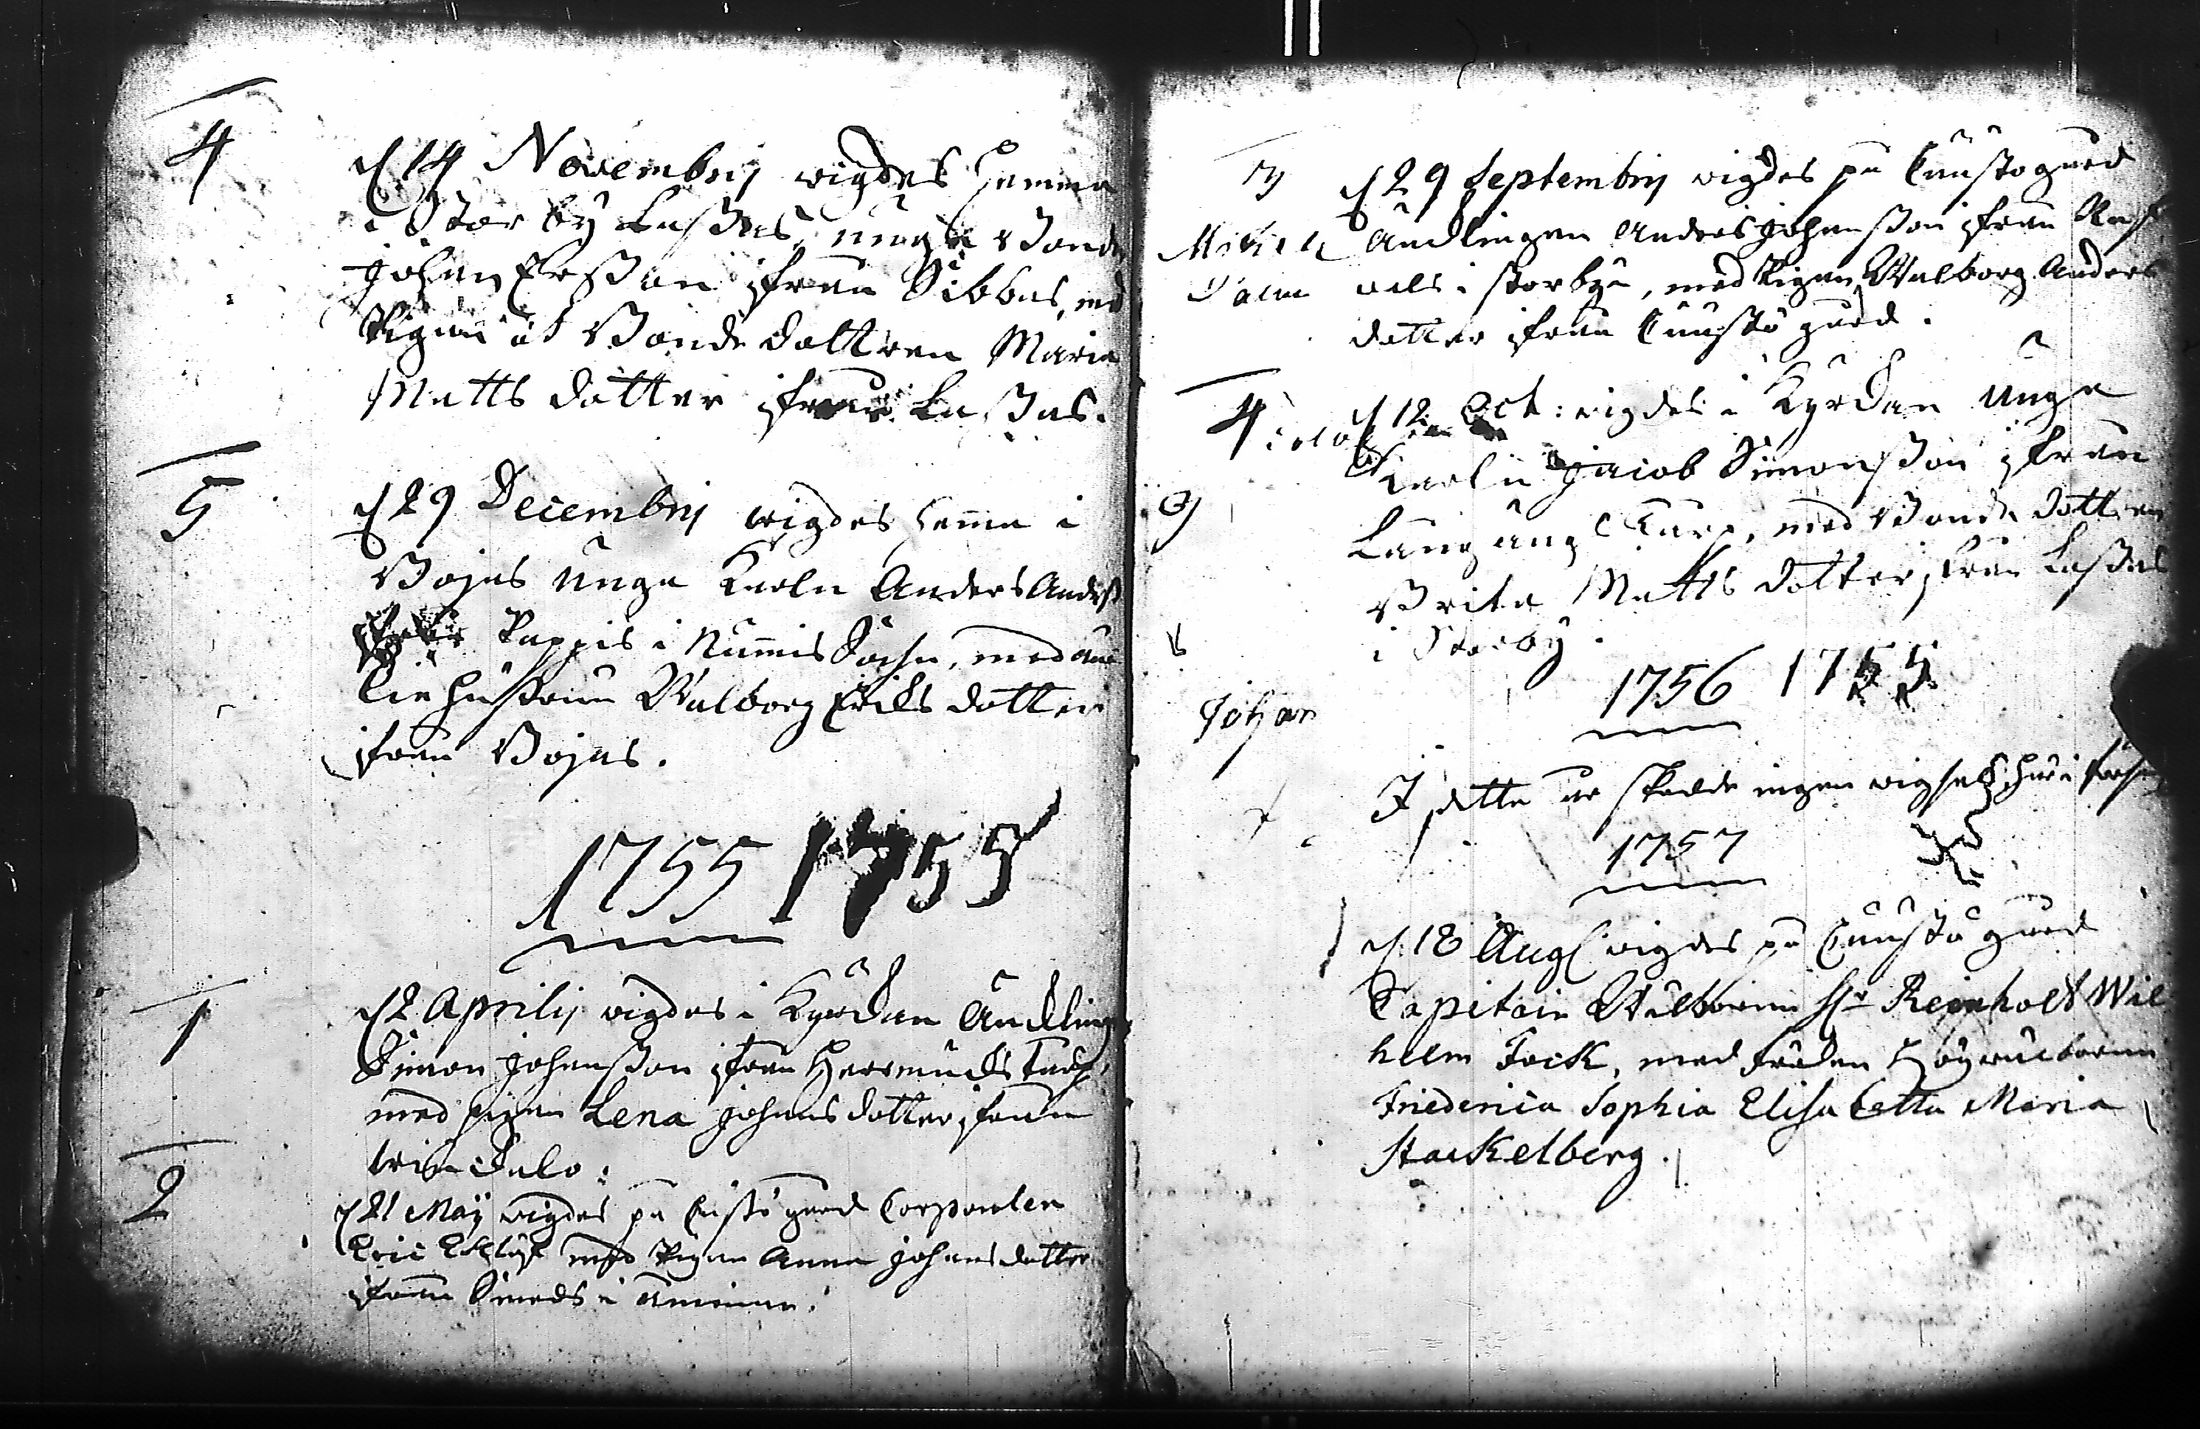 4
d 14 Novembrij wigdes hemma
i Storby Lassas, unge Bonden
Johan Ersson ifrån Sibbas, med
Pigan ok Bonde dottren Maria
Matts dotter ifrån Lassas.
5
d 29 Decembrij wigdes hema i
Bojas unge Karln Anders Anderss
Pappis i Nummis Sochn, med
hustrun Walborg Erichs dotter
ifrån Bojas.
1755 1755
1
d 2 Aprilij wigdes i Kyrckan
Simon Johansson ifrån
med pigan Lena Johans dotter ifrån

2
d 21 Maij wigdes på Custö gård Corporalen
Eric Eklöf med Pigan Anna Johansdotter
ifrån Smeds i
3
d 29 Septembrij wigdes på Cuusto gård
Anders Johansson ifrån
i storbyn, med Pigan Walborg Anders
dotter ifrån Cuustö gård.
4
d 12 Oct: wigdes i Kyrckan Unge
Karln Jacob Simonsson ifrån
med Bonde dottren
Brita Matts dotter ifrån Lassas
i Storby.
1756 1755
Johan
I detta år skedde ingen wigsel här i
1757
1
d. 18 Aug wigdes på Cuustö gård
Capitain Wälborne Hr Reinholt Wil
helm Fock, med Fröken Högwälborna
Friderica Sophia Elisabetta Maria
Stackelberg.